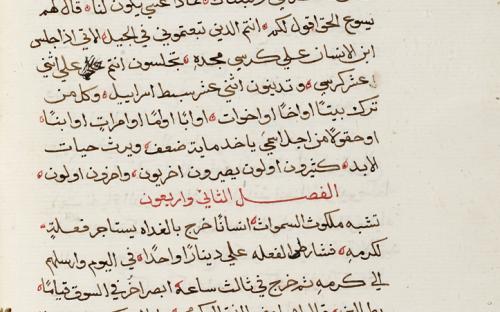 فماذا عسي يكون لنا قال لهم
يسوع الحق اقول لكم انتم الذين تبعتموني في الجيل الاتي اذا جلس
ابن الانسان علي كرسي مجده تجلسون انتم علي اثني
عشر كرسي وتدينون اثني عشر سبط اسراييل وكل من
ترك بيتا او اخا او اخوات او ابا او اما او امراة او ابنا
او حقولا من اجل اسمي ياخد ماية ضعف ويرث حيات
الابد كثيرون اولون يصيرون اخريون واخرون اولون
الفصل الثاني واربعون
تشبه ملكوت السموات انسانا خرج بالغداه يستاجر فعلة
لكرمه فشارط الفعله علي دينارا واحدا في اليوم وارسلهم
الي كرمه ثم خرج في ثالث ساعة ابصر اخر في السوق قياما